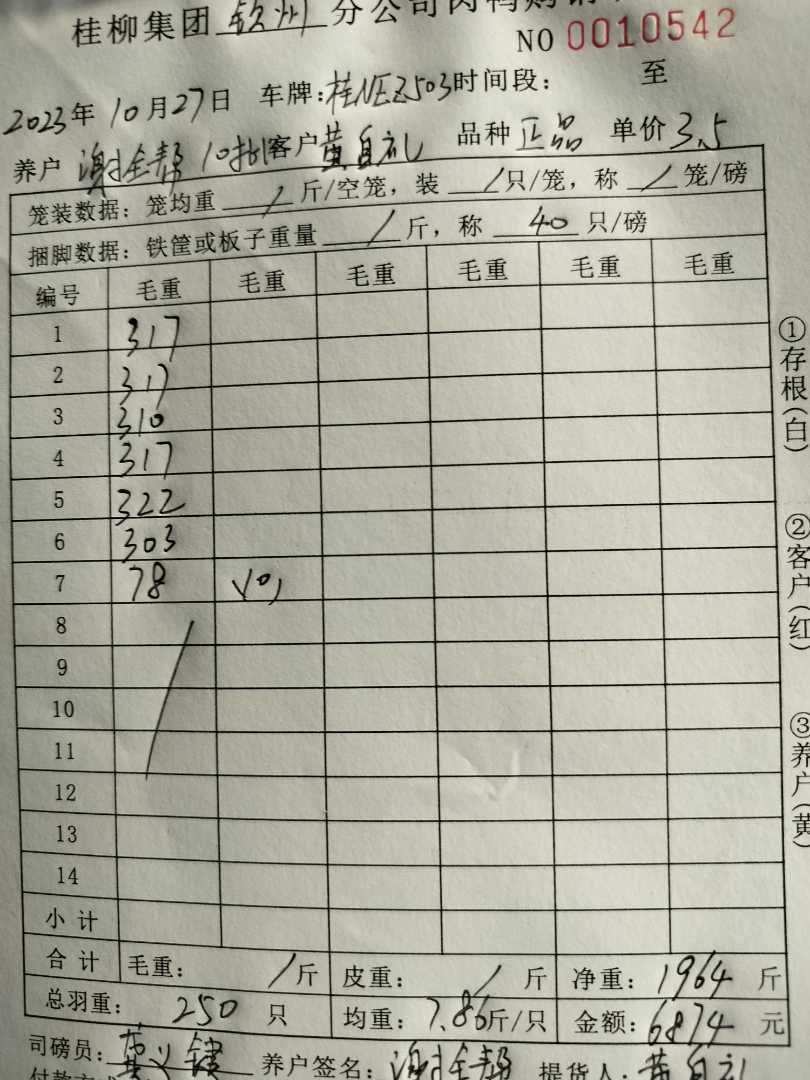 桂柳集团 钦州 分公司肉鸭购销
NO 0010542
2023年10月27日 车牌:桂NEZ503 时间段: 至
养户 谢全帮 10批 客户 黄自礼 品种 正品 单价 3.5
笼装数据: 笼均重 / 斤/空笼, 装 / 只/笼, 称 / 笼/磅
捆脚数据: 铁筐或板子重量 / 斤, 称 40 只/磅
编号 毛重 毛重 毛重 毛重 毛重 毛重
1 317
2 317
3 310
4 317
5 322
6 303
7 78
8
9
10
11
12
13
14
小计
合计 毛重: / 斤 皮重: / 斤 净重: 1964 斤
总羽重: 250 只 均重: 7.86斤/只 金额: 6874 元
司磅员: 养户签名: 谢全帮 提货人: 黄自礼
付款方式
①存根(白)
②客户(红)
③养户(黄)